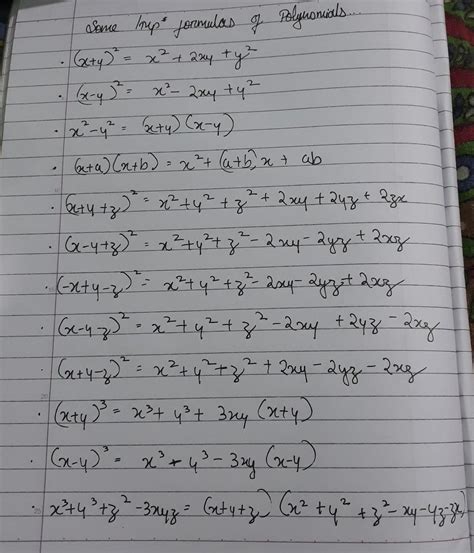 Some Imp* formulas of Polynomials...
• (x+y)² = x² + 2xy + y²
• (x-y)² = x² - 2xy + y²
• x² - y² = (x+y) (x-y)
• (x+a) (x+b) = x² + (a+b) x + ab
• (x+y+z)² = x² + y² + z² + 2xy + 2yz + 2zx
• (x-y+z)² = x² + y² + z² - 2xy - 2yz + 2xz
• (-x+y-z)² = x² + y² + z² - 2xy - 2yz + 2xz
• (x-y-z)² = x² + y² + z² - 2xy + 2yz - 2xz
• (x+y-z)² = x² + y² + z² + 2xy - 2yz - 2xz
• (x+y)³ = x³ + y³ + 3xy (x+y)
• (x-y)³ = x³ - y³ - 3xy (x-y)
• x³ + y³ + z² - 3xyz = (x+y+z) (x² + y² + z² - xy - yz - zx)